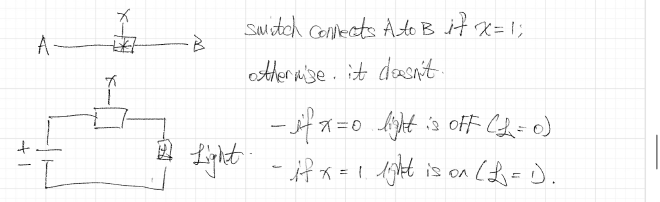 x
A B
switch connects A to B if x=1;
otherwise, it doesn't.
x
- if x=0 light is OFF (L=0)
+
-
Light
- if x = 1. light is on (L=1).